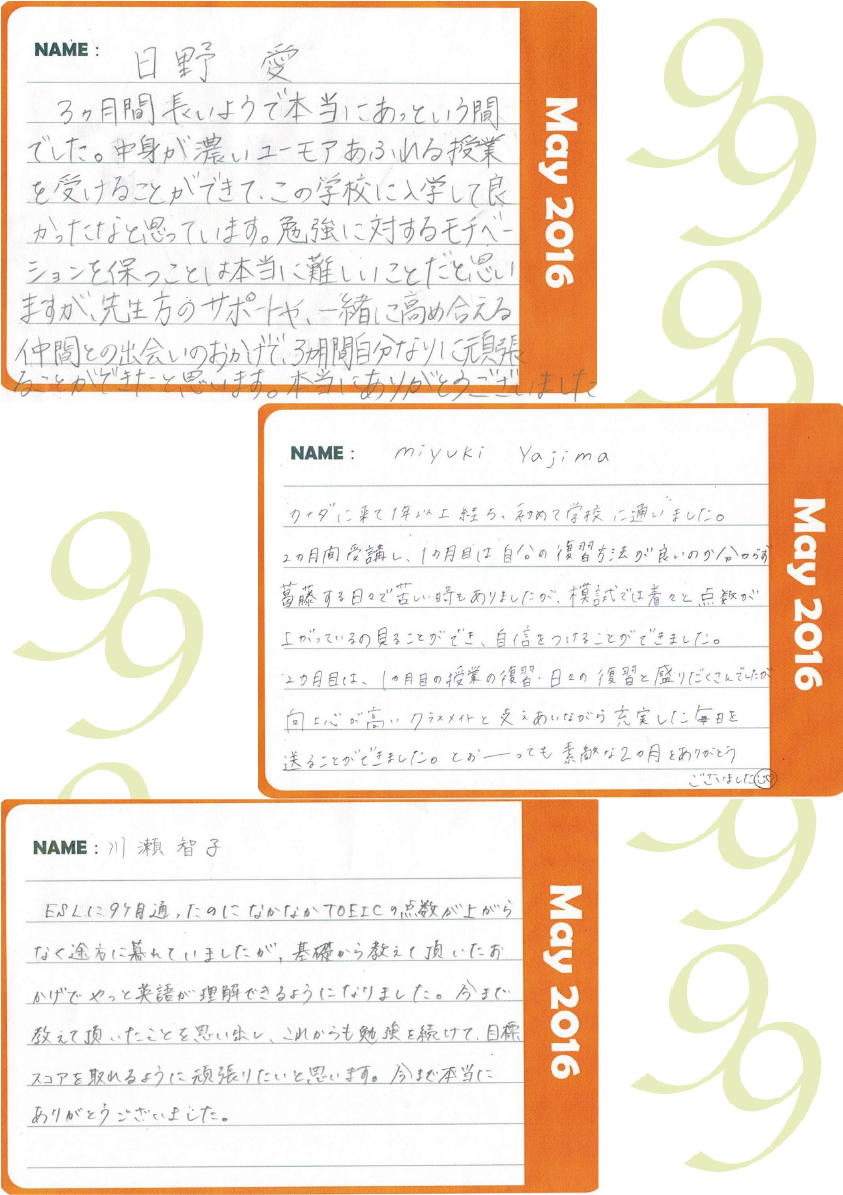 NAME : 日野 愛
3ヵ月間 長いようで本当にあっという間
でした。中身が濃いユーモアあふれる授業
を受けることができて、この学校に入学して良
かったなと思っています。勉強に対するモチベー
ションを保つことは本当に難しいことだと思い
ますが、先生方のサポートや、一緒に高め合える
仲間との出会いのおかげで、3ヵ月間自分なりに頑張
ることができたと思います。本当にありがとうございました
May 2016
NAME : miyuki Yajima
カナダに来て1年以上経ち、初めて学校に通いました。
2ヵ月間受講し、1ヵ月目は自分の復習方法が良いのか分からず
葛藤する日々で苦しい時もありましたが、模試では着々と点数が
上がっているの見ることができ、自信をつけることができました。
2ヵ月目は、1ヵ月目の授業の復習・日々の復習と盛りだくさんでしたが
向上心が高いクラスメイトと支えあいながら充実した毎日を
送ることができました。とぉーっても素敵な2ヵ月をありがとう
ございました
May 2016
NAME : 川瀬 智子
ESLに9ヶ月通ったのになかなかTOEICの点数が上がら
なく途方に暮れていましたが、基礎から教えて頂いたお
かげでやっと英語が理解できるようになりました。今まで
教えて頂いたことを思い出し、これからも勉強を続けて、目標
スコアを取れるように頑張りたいと思います。今まで本当に
ありがとうございました。
May 2016
99
99
99
99
99
99